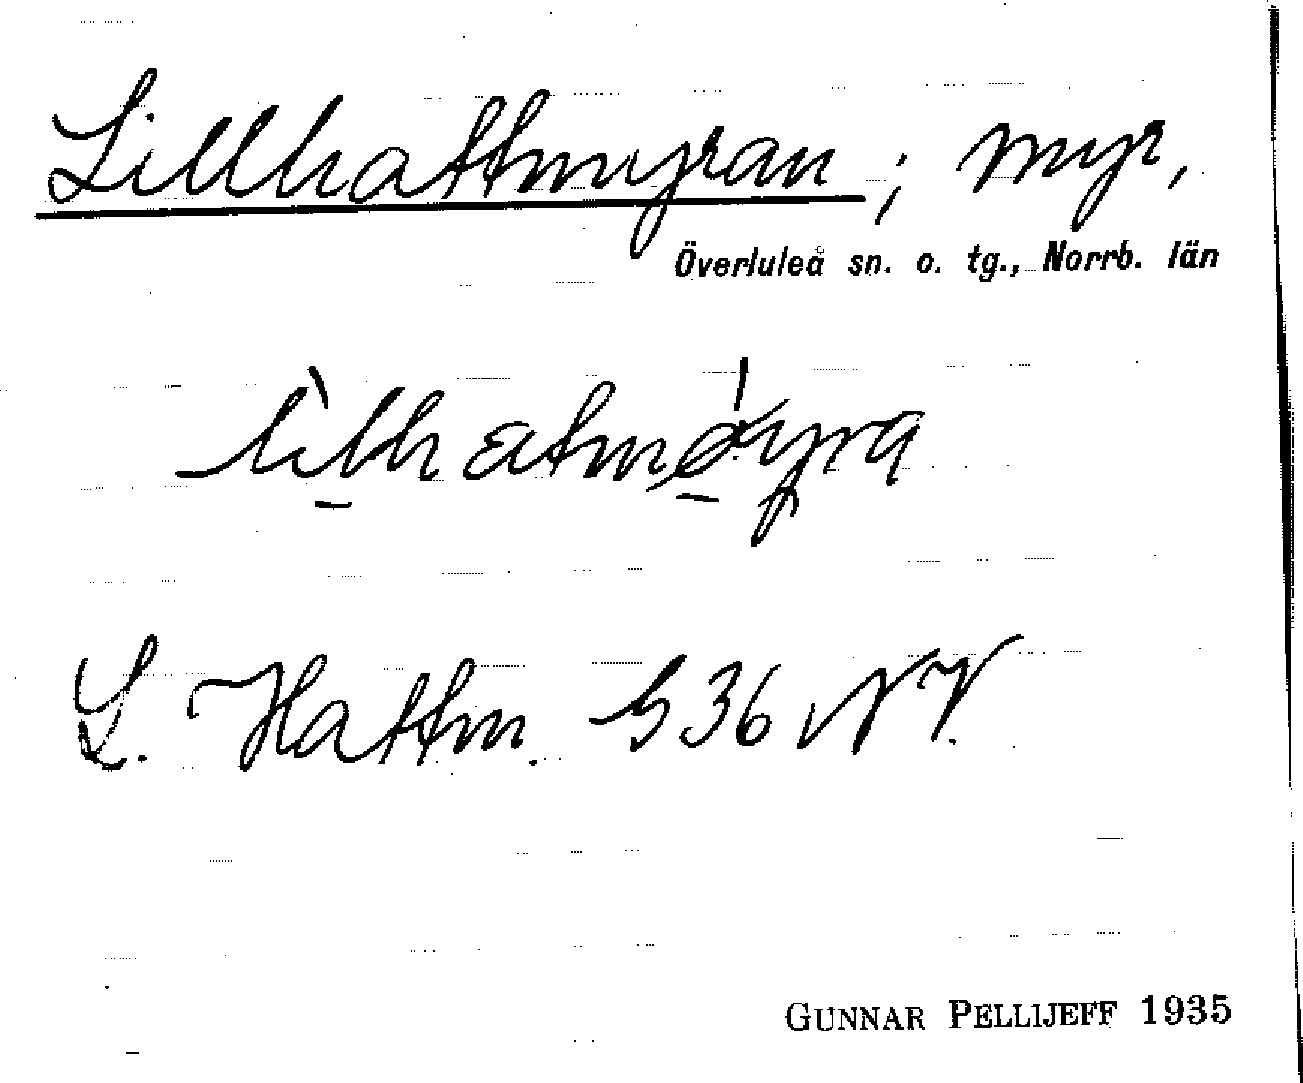 Lillhattmyran ; myr,
Överluleå sn. o. tg., Norrb. län
L. Hattm. S 36 NV.
GUNNAR PELLIJEFF 1935